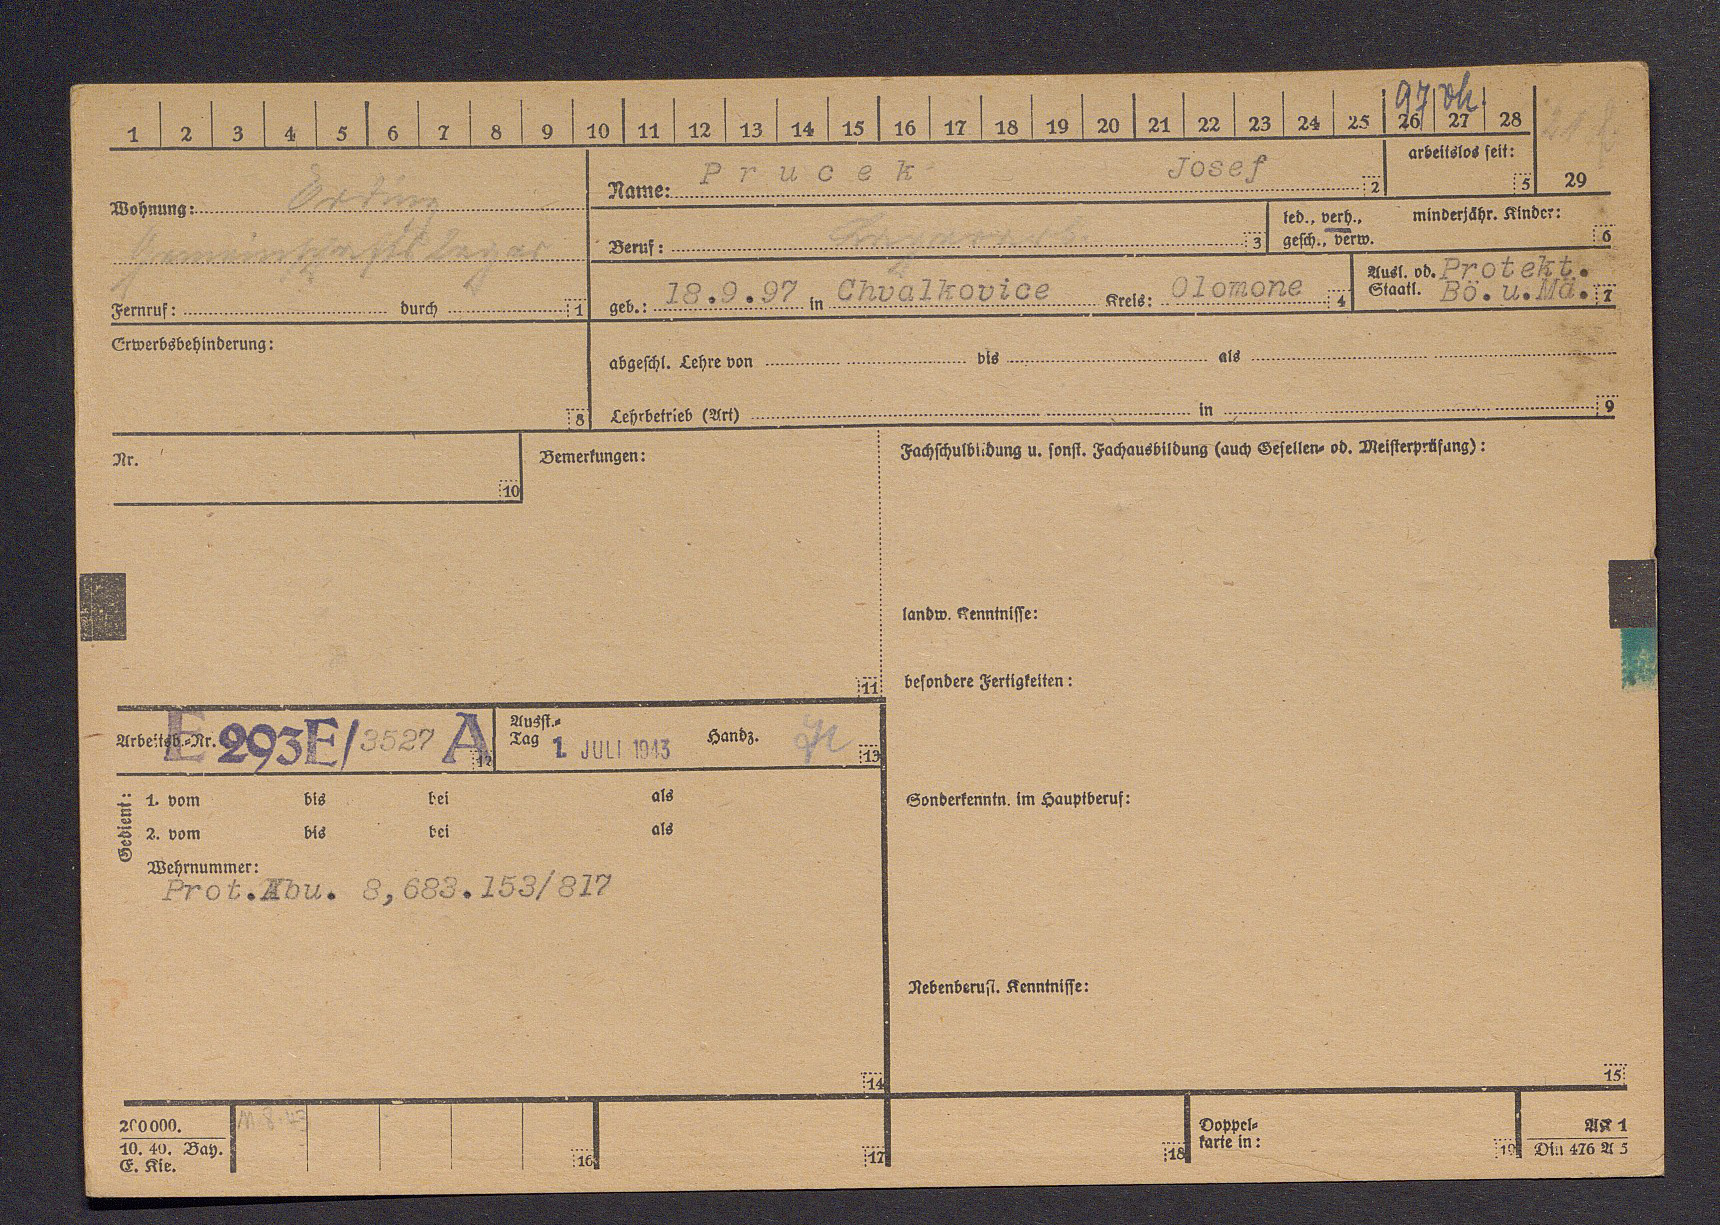 97 vh
1 2 3 4 5 6 7 8 9 10 11 12 13 14 15 16 17 18 19 20 21 22 23 24 25 26 27 28
Name: Prucek Josef 2
arbeitslos seit: 5 29
Wohnung: Erding
Gemeinschaftslager
Fernruf: durch 1
Beruf: 3
led., verh., minderjähr. Kinder:
gesch., verw. 6
geb.: 18.9.97 in Chvalkovice Kreis: Olomone 4
Ausl. od. Protekt.
Staatl. Bö.u.Mä. 7
Erwerbsbehinderung:
8
abgeschl. Lehre von bis als
Lehrbetrieb (Art) in 9
Nr.
10
Bemerkungen:
11
Fachschulbildung u. sonst. Fachausbildung (auch Gesellen- od. Meisterprüfung):
landw. Kenntnisse:
besondere Fertigkeiten:
Arbeitsb.-Nr. E 293E/3527 A 12
Ausst.-
Tag 1. JULI 1943 Handz. 13
Gedient:
1. vom bis bei als
2. vom bis bei als
Wehrnummer:
Prot.Abu. 8,683.153/817
14
Sonderkenntn. im Hauptberuf:
Nebenberufl. Kenntnisse:
15
200000.
10. 40. Bay.
E. Kie.
16
17
18
Doppel-
karte in:
19
AK 1
Din 476 A 5